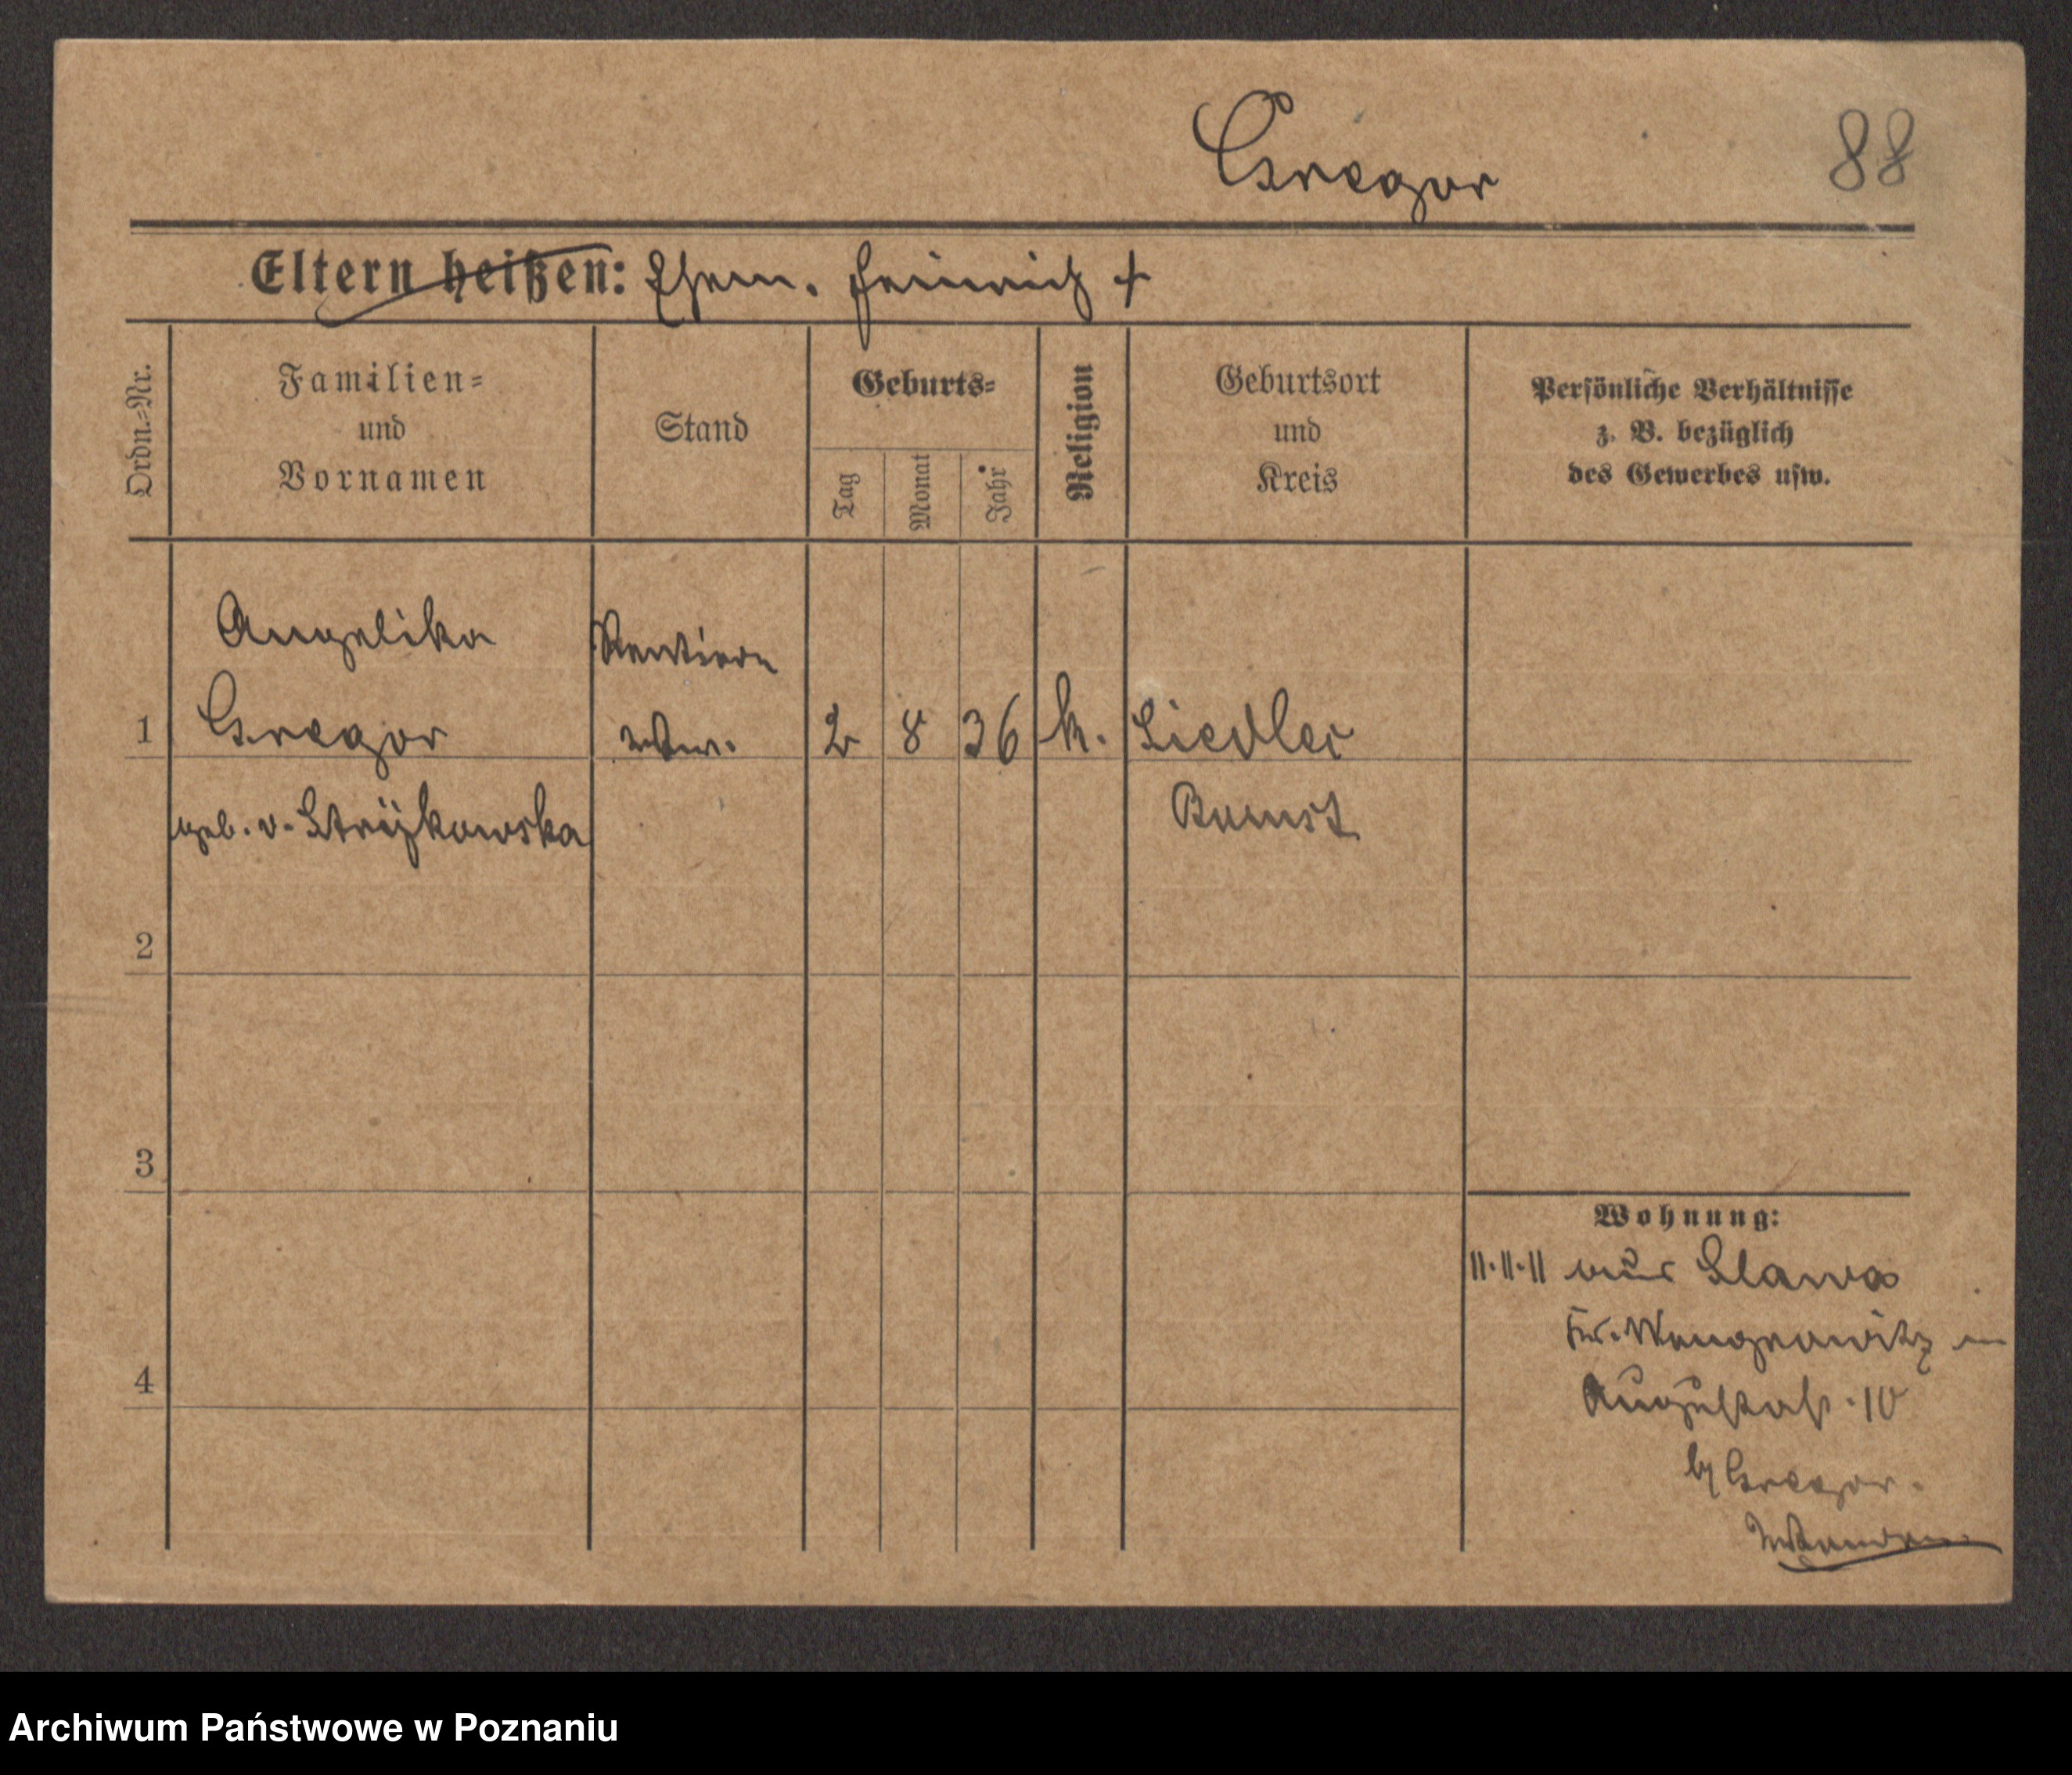 Gregor
88
Eltern heißen: Ehem. Heinrich +
Ordn.=Nr.
Familien=
und
Vornamen
Stand
Geburts=
Tag
Monat
Jahr
Religion
Geburtsort
und
Kreis
Persönliche Verhältnisse
z. B. bezüglich
des Gewerbes usw.
Angelika
Rentiere
1 Gregor Wtw. 2 8 36 k. Siedlec
geb. v. Strÿkowska Bomst
2
3
Wohnung:
11.11.11 aus Slawa
Kr. Wongrowitz in
4
Augustastr. 10
b/ Gregor.
Archiwum Państwowe w Poznaniu